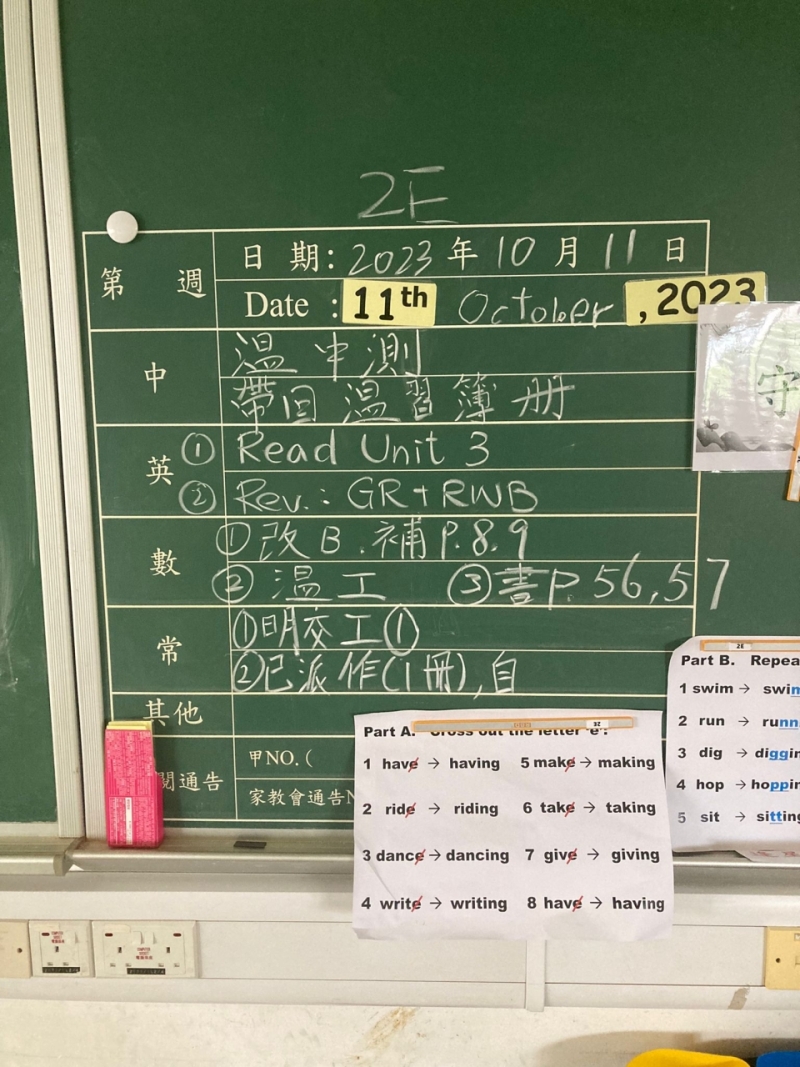 2E
第 週
日 期: 2023 年 10 月 11 日
Date : 11th October , 2023
守
中
温中測
帶回温習簿冊
英
① Read Unit 3
② Rev.: GR + RWB
數
①改B.補P.8.9
②温工 ③書P.56,57
常
①明交工①
②已派作(1冊),自
其他
閱通告
甲NO.(
家教會通告N
Part A. Cross out the letter 'e'.
1 have → having 5 make → making
2 ride → riding 6 take → taking
3 dance → dancing 7 give → giving
4 write → writing 8 have → having
2E
Part B. Repea
1 swim → swim
2 run → runn
3 dig → digging
4 hop → hoppi
5 sit → sitting